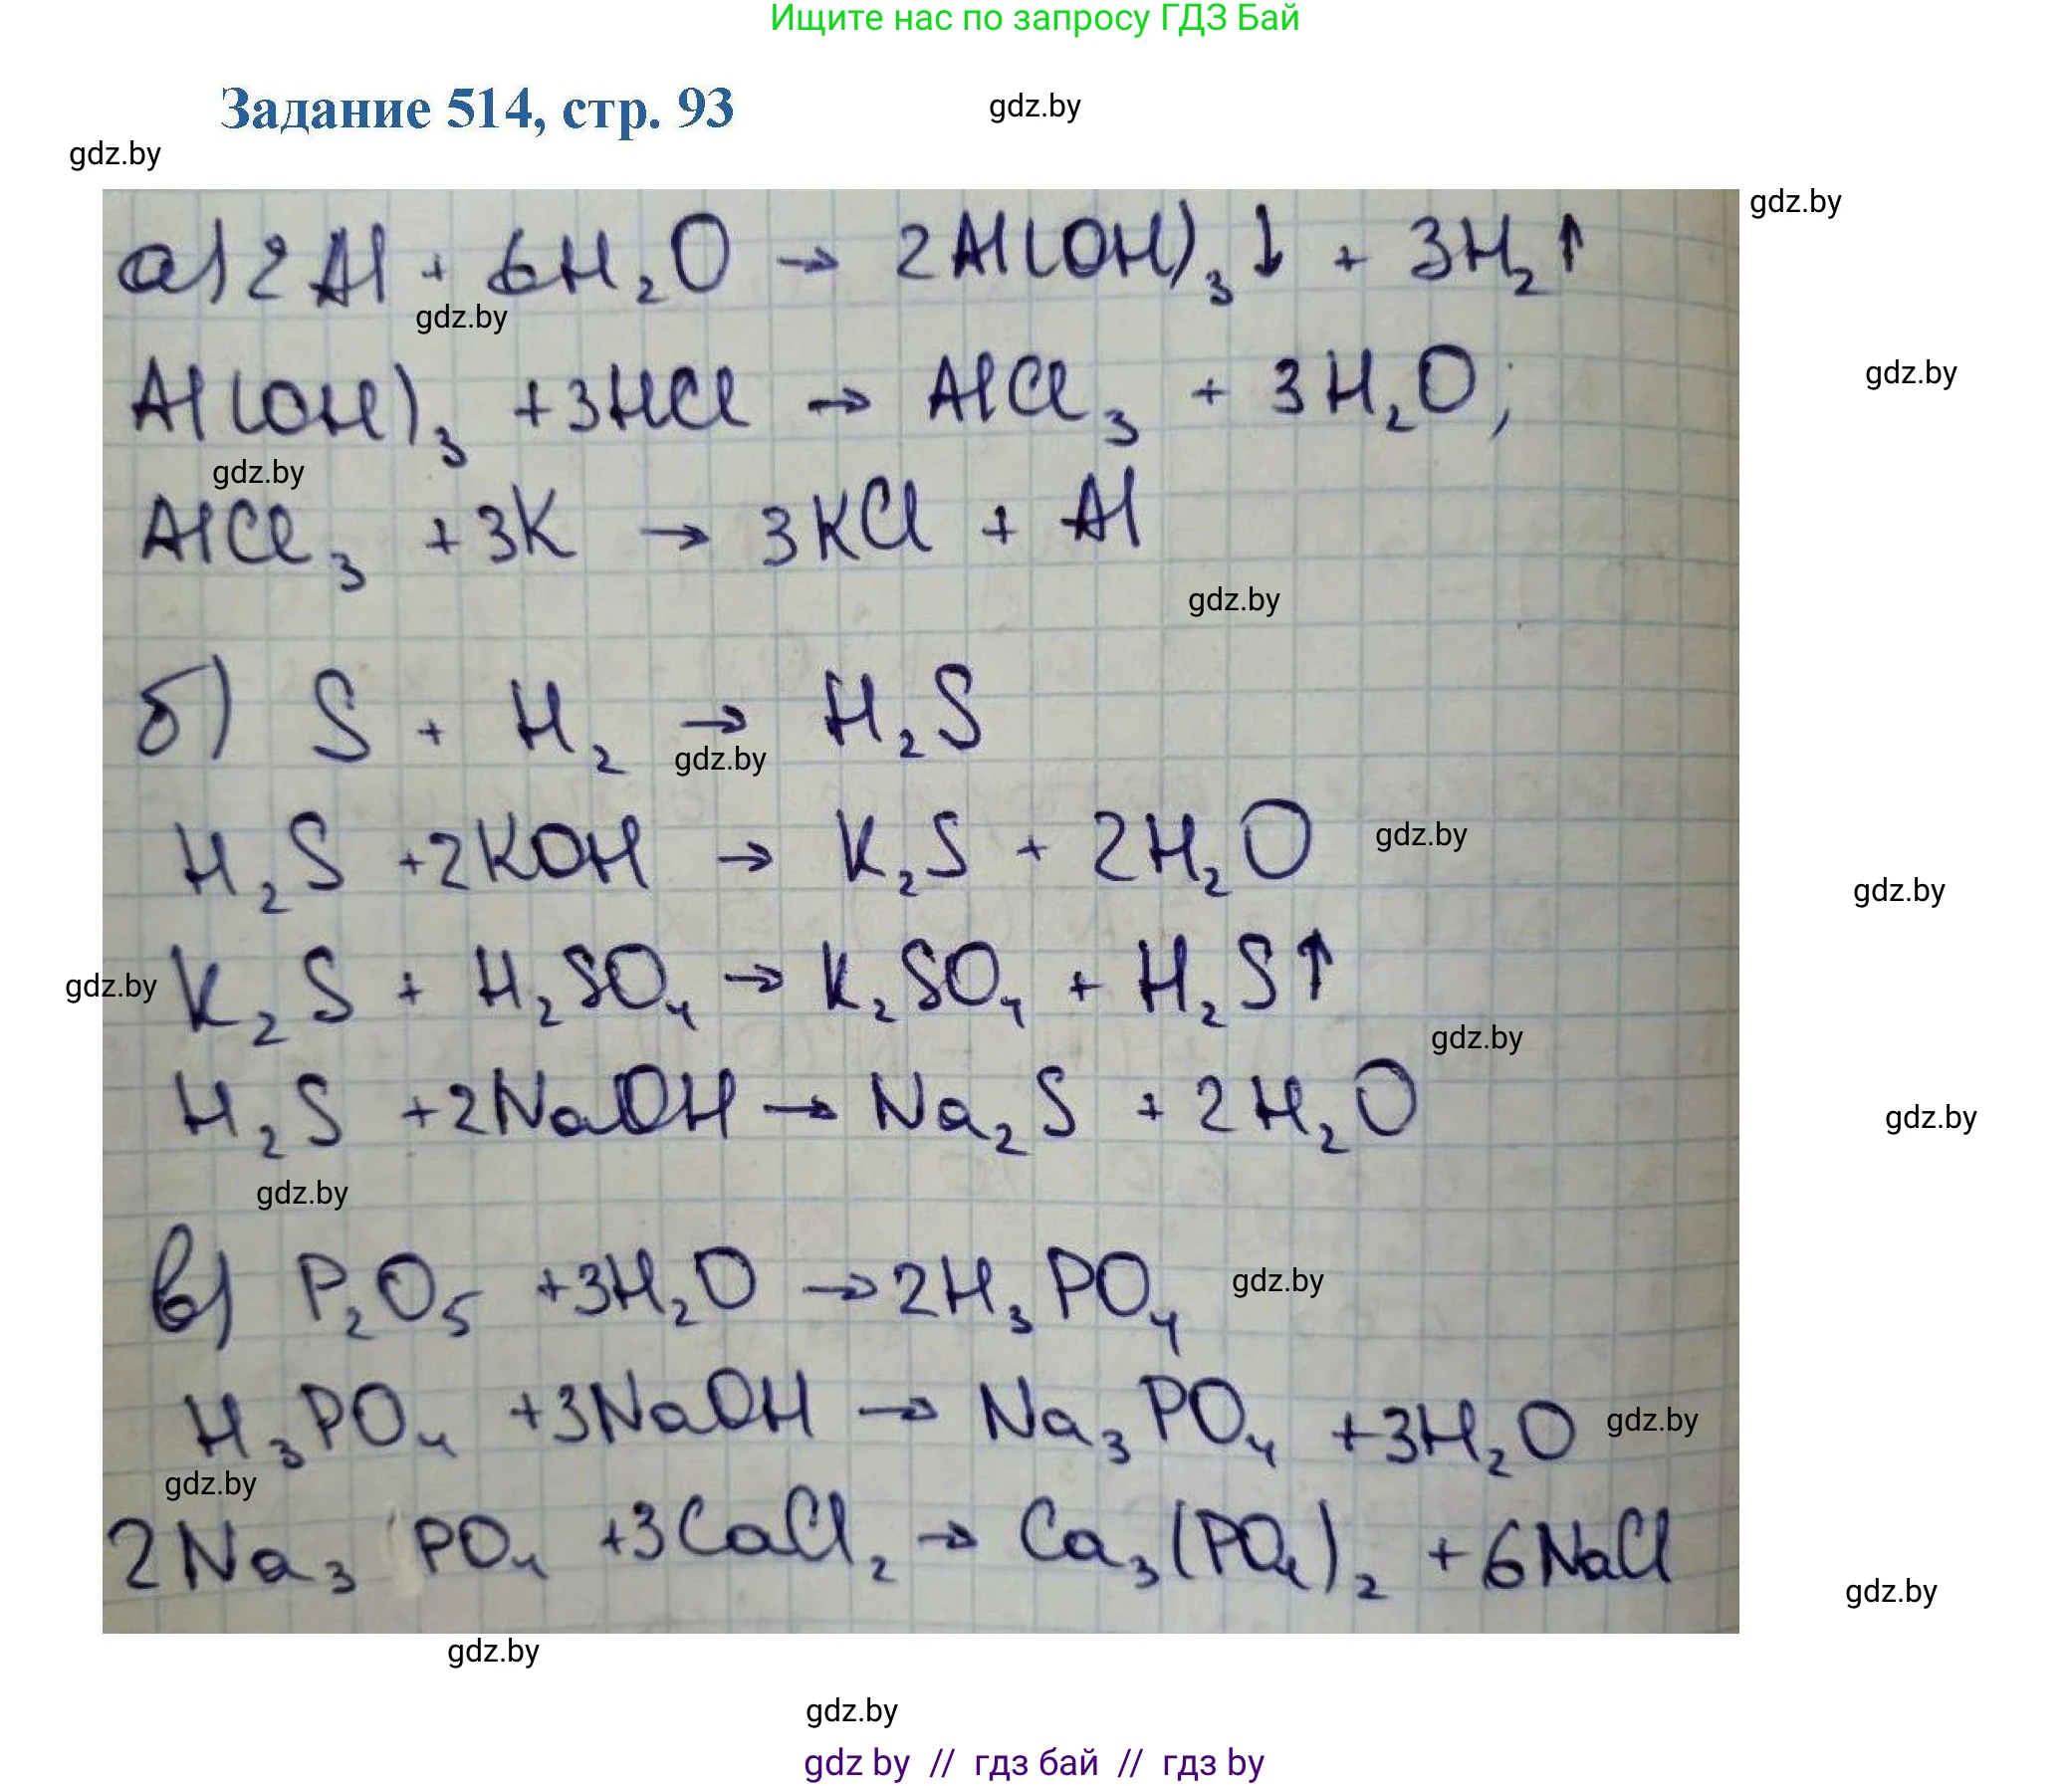 Ищите нас по запросу ГДЗ Бай
Задание 514, стр. 93
gdz.by
gdz.by
gdz.by
а) 2Al + 6H₂O → 2Al(OH)₃↓ + 3H₂↑
gdz.by
gdz.by
Al(OH)₃ + 3HCl → AlCl₃ + 3H₂O;
gdz.by
AlCl₃ + 3K → 3KCl + Al
gdz.by
б) S + H₂ → H₂S
gdz.by
H₂S + 2KOH → K₂S + 2H₂O
gdz.by
gdz.by
gdz.by
K₂S + H₂SO₄ → K₂SO₄ + H₂S↑
gdz.by
H₂S + 2NaOH → Na₂S + 2H₂O
gdz.by
gdz.by
в) P₂O₅ + 3H₂O → 2H₃PO₄
gdz.by
H₃PO₄ + 3NaOH → Na₃PO₄ + 3H₂O
gdz.by
gdz.by
2Na₃PO₄ + 3CaCl₂ → Ca₃(PO₄)₂ + 6NaCl
gdz.by
gdz.by
gdz.by
gdz by // гдз бай // гдз by